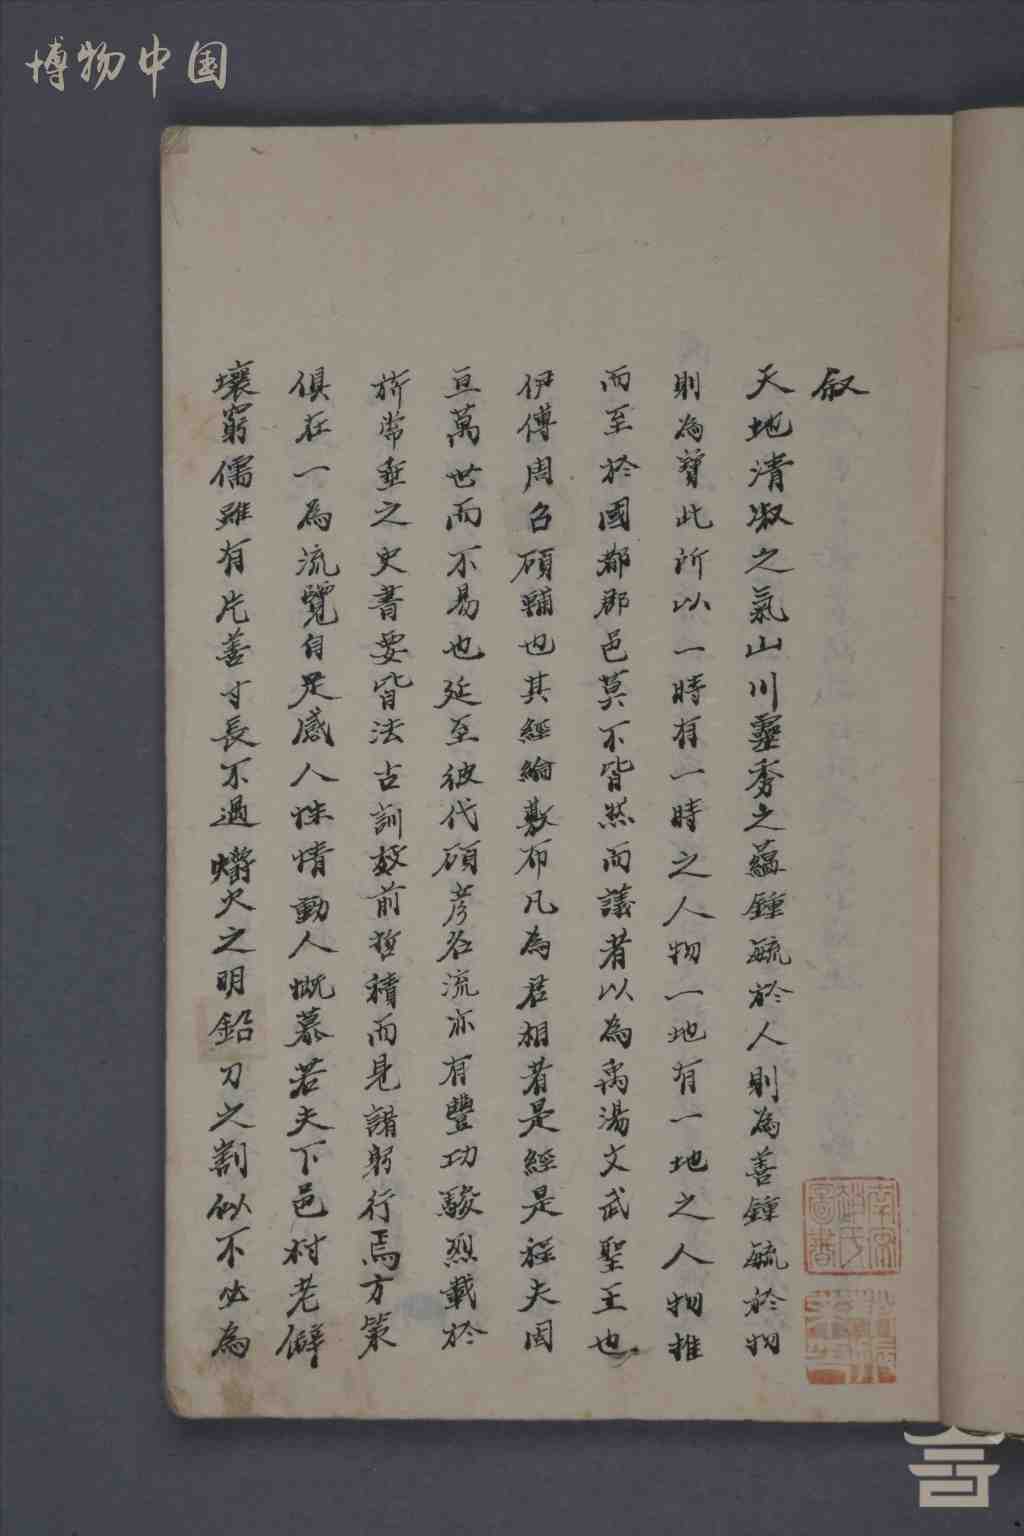 博物中国
叙
天地清淑之氣山川靈秀之蘊鍾毓於人則為善鍾毓於物
則為寶此所以一時有一時之人物一地有一地之人物推
而至於國都郡邑莫不皆然而議者以為禹湯文武聖王也
伊傅周召碩輔也其經綸敷布凡為君相者是經是程夫固
亘萬世而不易也延至彼代碩彦名流亦有豐功駿烈載於
旂常垂之史書要皆法古訓效前哲積而見諸躬行焉方策
俱在一為流覽自足感人性情動人慨慕若夫下邑村老僻
壤窮儒雖有片善寸長不過爝火之明鉛刀之割似不必為